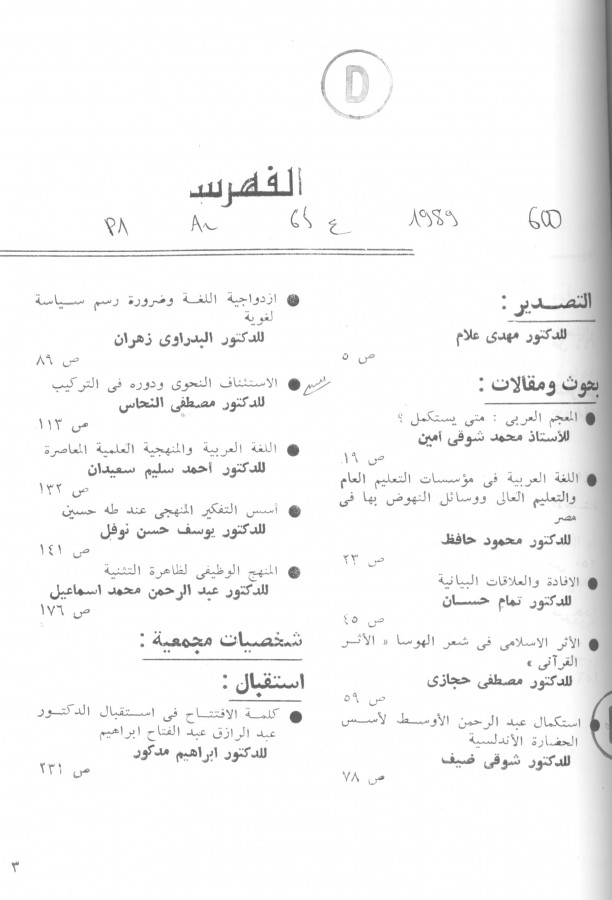 D
الفهرس
P1 A~ 64 ع 1989 600
التصدير :
للدكتور مهدى علام
ص ٥
بحوث ومقالات :
المعجم العربى : متى يستكمل ؟
للأستاذ محمد شوقى أمين
ص ١٩
اللغة العربية فى مؤسسات التعليم العام
والتعليم العالى ووسائل النهوض بها فى
مصر
للدكتور محمود حافظ
ص ٢٣
الافادة والعلاقات البيانية
للدكتور تمام حسان
ص ٤٥
الأثر الاسلامى فى شعر الهوسا « الأثر
القرآنى »
للدكتور مصطفى حجازى
ص ٥٩
استكمال عبد الرحمن الأوسط لأسس
الحضارة الأندلسية
للدكتور شوقى ضيف
ص ٧٨
ازدواجية اللغة وضرورة رسم سياسة
لغوية
للدكتور البدراوى زهران
ص ٨٩
الاستئناف النحوى ودوره فى التركيب
للدكتور مصطفى النحاس
ص ١١٣
اللغة العربية والمنهجية العلمية المعاصرة
للدكتور أحمد سليم سعيدان
ص ١٣٢
أسس التفكير المنهجى عند طه حسين
للدكتور يوسف حسن نوفل
ص ١٤١
المنهج الوظيفى لظاهرة التثنية
للدكتور عبد الرحمن محمد اسماعيل
ص ١٧٦
شخصيات مجمعية :
استقبال :
كلمة الافتتاح فى استقبال الدكتور
عبد الرازق عبد الفتاح ابراهيم
للدكتور ابراهيم مدكور
ص ٢٣١
٣